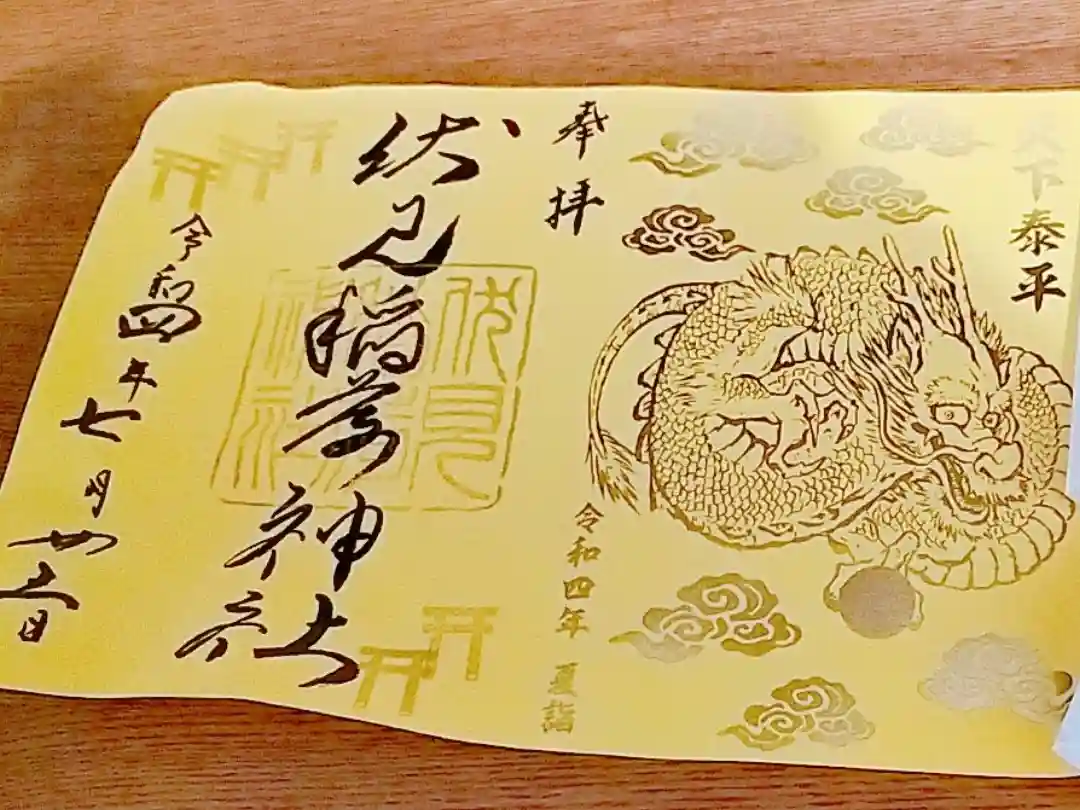 天下泰平
奉拝
令和四年 夏詣
伏見稲荷神社
伏見
神社
令和四年七月廿日